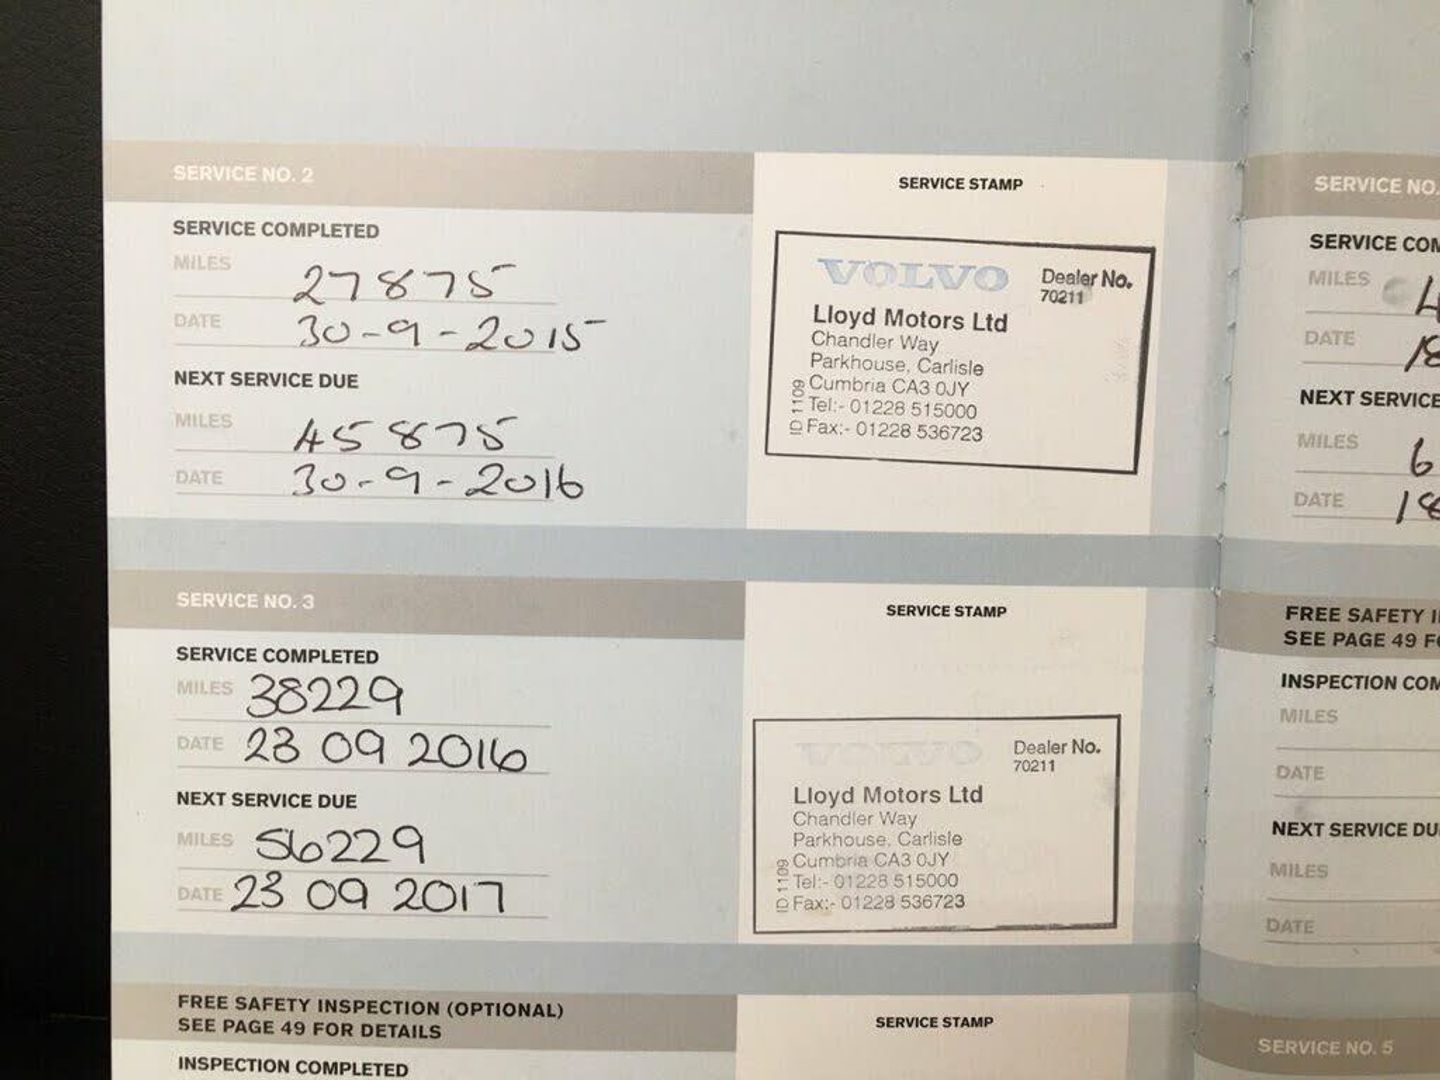 SERVICE NO. 2
SERVICE COMPLETED
MILES 27875
DATE 30-9-2015
NEXT SERVICE DUE
MILES 45875
DATE 30-9-2016
SERVICE STAMP
VOLVO Dealer No.
70211
Lloyd Motors Ltd
Chandler Way
Parkhouse, Carlisle
Cumbria CA3 0JY
Tel:- 01228 515000
Fax:- 01228 536723
ID 1109
SERVICE NO. 3
SERVICE COMPLETED
MILES 38229
DATE 23 09 2016
NEXT SERVICE DUE
MILES 56229
DATE 23 09 2017
SERVICE STAMP
VOLVO Dealer No.
70211
Lloyd Motors Ltd
Chandler Way
Parkhouse, Carlisle
Cumbria CA3 0JY
Tel:- 01228 515000
Fax:- 01228 536723
ID 1109
FREE SAFETY INSPECTION (OPTIONAL)
SEE PAGE 49 FOR DETAILS
INSPECTION COMPLETED
SERVICE STAMP
SERVICE NO.
SERVICE COM
MILES 4
DATE 18
NEXT SERVICE
MILES 6
DATE 18
FREE SAFETY
SEE PAGE 49
INSPECTION COM
MILES
DATE
NEXT SERVICE DU
MILES
DATE
SERVICE NO. 5